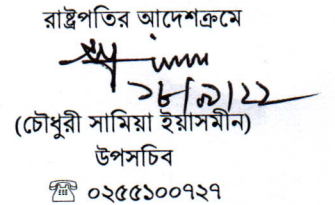 রাষ্ট্রপতির আদেশক্রমে
২৮/৯/২২
(চৌধুরী সামিয়া ইয়াসমীন)
উপসচিব
☎ ০২৫৫১০০৭২৭